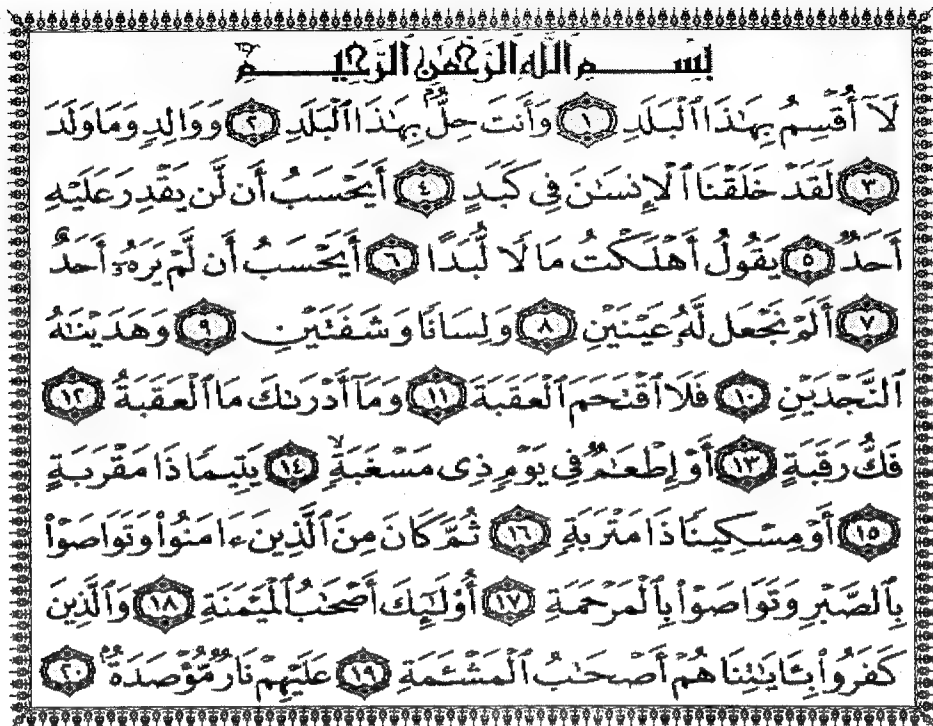 بِسْمِ ٱللَّهِ ٱلرَّحْمَٰنِ ٱلرَّحِيمِ
لَآ أُقْسِمُ بِهَٰذَا ٱلْبَلَدِ ١ وَأَنتَ حِلٌّۢ بِهَٰذَا ٱلْبَلَدِ ٢ وَوَالِدٍ وَمَا وَلَدَ
٣ لَقَدْ خَلَقْنَا ٱلْإِنسَٰنَ فِى كَبَدٍ ٤ أَيَحْسَبُ أَن لَّن يَقْدِرَ عَلَيْهِ
أَحَدٌ ٥ يَقُولُ أَهْلَكْتُ مَالًا لُّبَدًا ٦ أَيَحْسَبُ أَن لَّمْ يَرَهُۥٓ أَحَدٌ
٧ أَلَمْ نَجْعَل لَّهُۥ عَيْنَيْنِ ٨ وَلِسَانًا وَشَفَتَيْنِ ٩ وَهَدَيْنَٰهُ
ٱلنَّجْدَيْنِ ١٠ فَلَا ٱقْتَحَمَ ٱلْعَقَبَةَ ١١ وَمَآ أَدْرَىٰكَ مَا ٱلْعَقَبَةُ ١٢
فَكُّ رَقَبَةٍ ١٣ أَوْ إِطْعَٰمٌ فِى يَوْمٍ ذِى مَسْغَبَةٍ ١٤ يَتِيمًا ذَا مَقْرَبَةٍ
١٥ أَوْ مِسْكِينًا ذَا مَتْرَبَةٍ ١٦ ثُمَّ كَانَ مِنَ ٱلَّذِينَ ءَامَنُوا۟ وَتَوَاصَوْا۟
بِٱلصَّبْرِ وَتَوَاصَوْا۟ بِٱلْمَرْحَمَةِ ١٧ أُو۟لَٰٓئِكَ أَصْحَٰبُ ٱلْمَيْمَنَةِ ١٨ وَٱلَّذِينَ
كَفَرُوا۟ بِـَٔايَٰتِنَا هُمْ أَصْحَٰبُ ٱلْمَشْـَٔمَةِ ١٩ عَلَيْهِمْ نَارٌ مُّؤْصَدَةٌۢ ٢٠